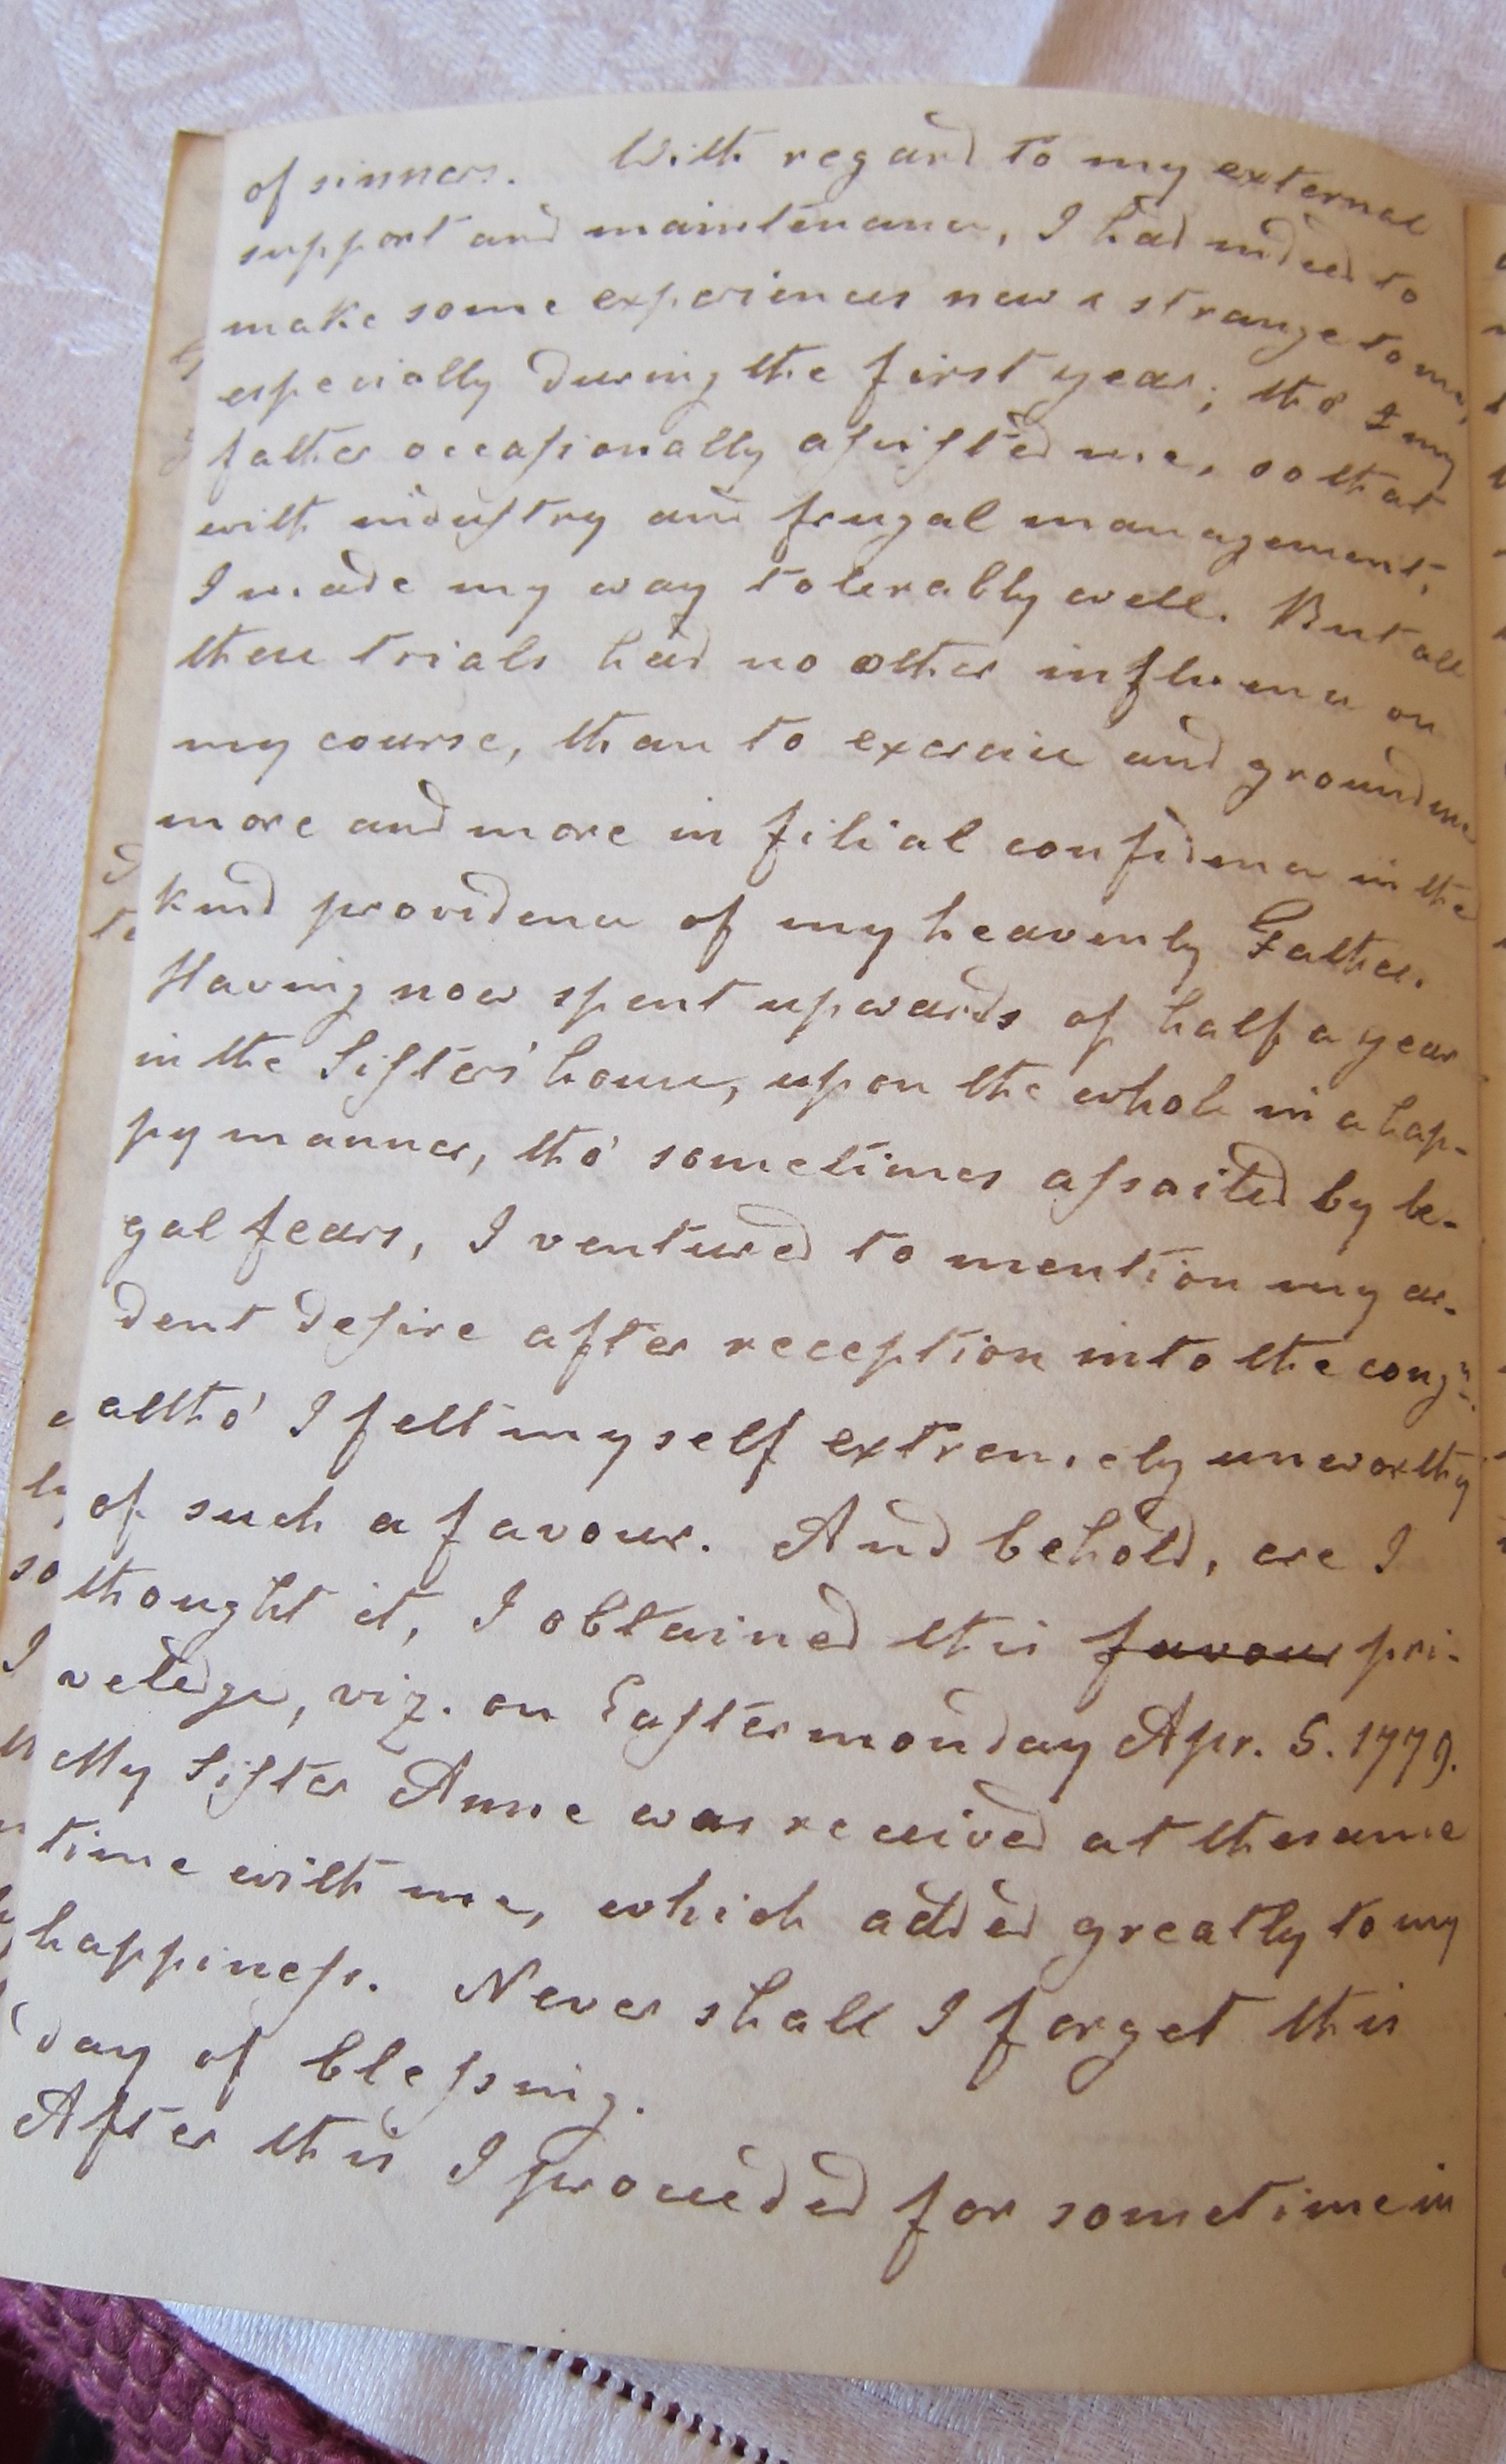 of sinners. With regard to my external
support and maintenance, I had indeed to
make some experiences new & strange to me,
especially during the first year; tho' my
father occasionally assisted me, so that
with industry and frugal management,
I made my way tolerably well. But all
these trials had no other influence on
my course, than to exercise and ground me
more and more in filial confidence in the
kind providence of my heavenly Father.
Having now spent upwards of half a year
in the Sisters' house, upon the whole in a hap-
py manner, tho' sometimes assailed by le-
gal fears, I ventured to mention my ar-
dent desire after reception into the congn.
altho' I felt myself extremely unworthy
of such a favour. And behold, ere I
thought it, I obtained this favour pri-
veledge, viz. on Easter monday Apr. 5. 1779.
My Sister Anne was received at the same
time with me, which added greatly to my
happiness. Never shall I forget this
day of blessing.
After this I proceeded for sometime in